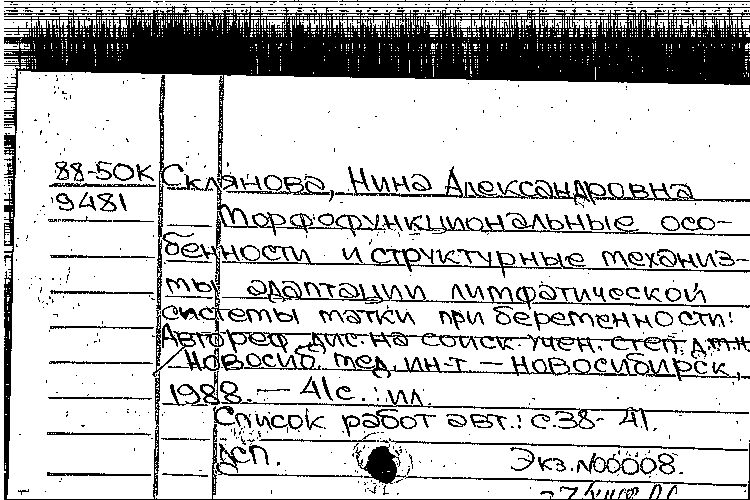 88-50К Склянова, Нина Александровна
9481
Морфофункциональные осо-
бенности и структурные механиз-
мы адаптации лимфатической
системы матки при беременности:
Автореф. дис. на соиск. учен. степ. д.м.н.
Новосиб. мед. ин-т – Новосибирск,
1988. — 41с. : ил.
Список работ авт.: с.38-41.
ДСП. Экз. №00008.